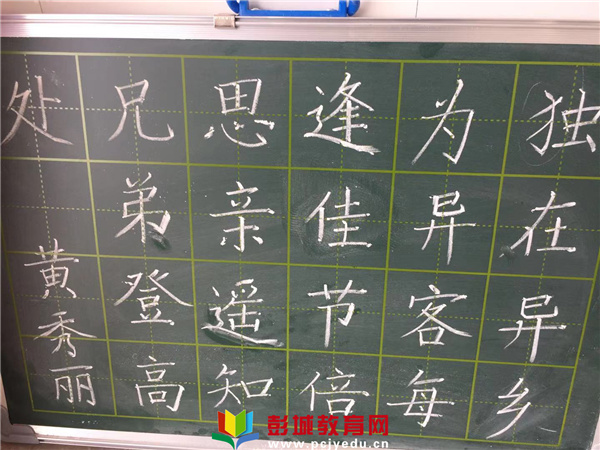 独在异乡
为异客每
逢佳节倍
思亲遥知
兄弟登高
处
黄秀丽
彭城教育网
www.pcjyedu.cn